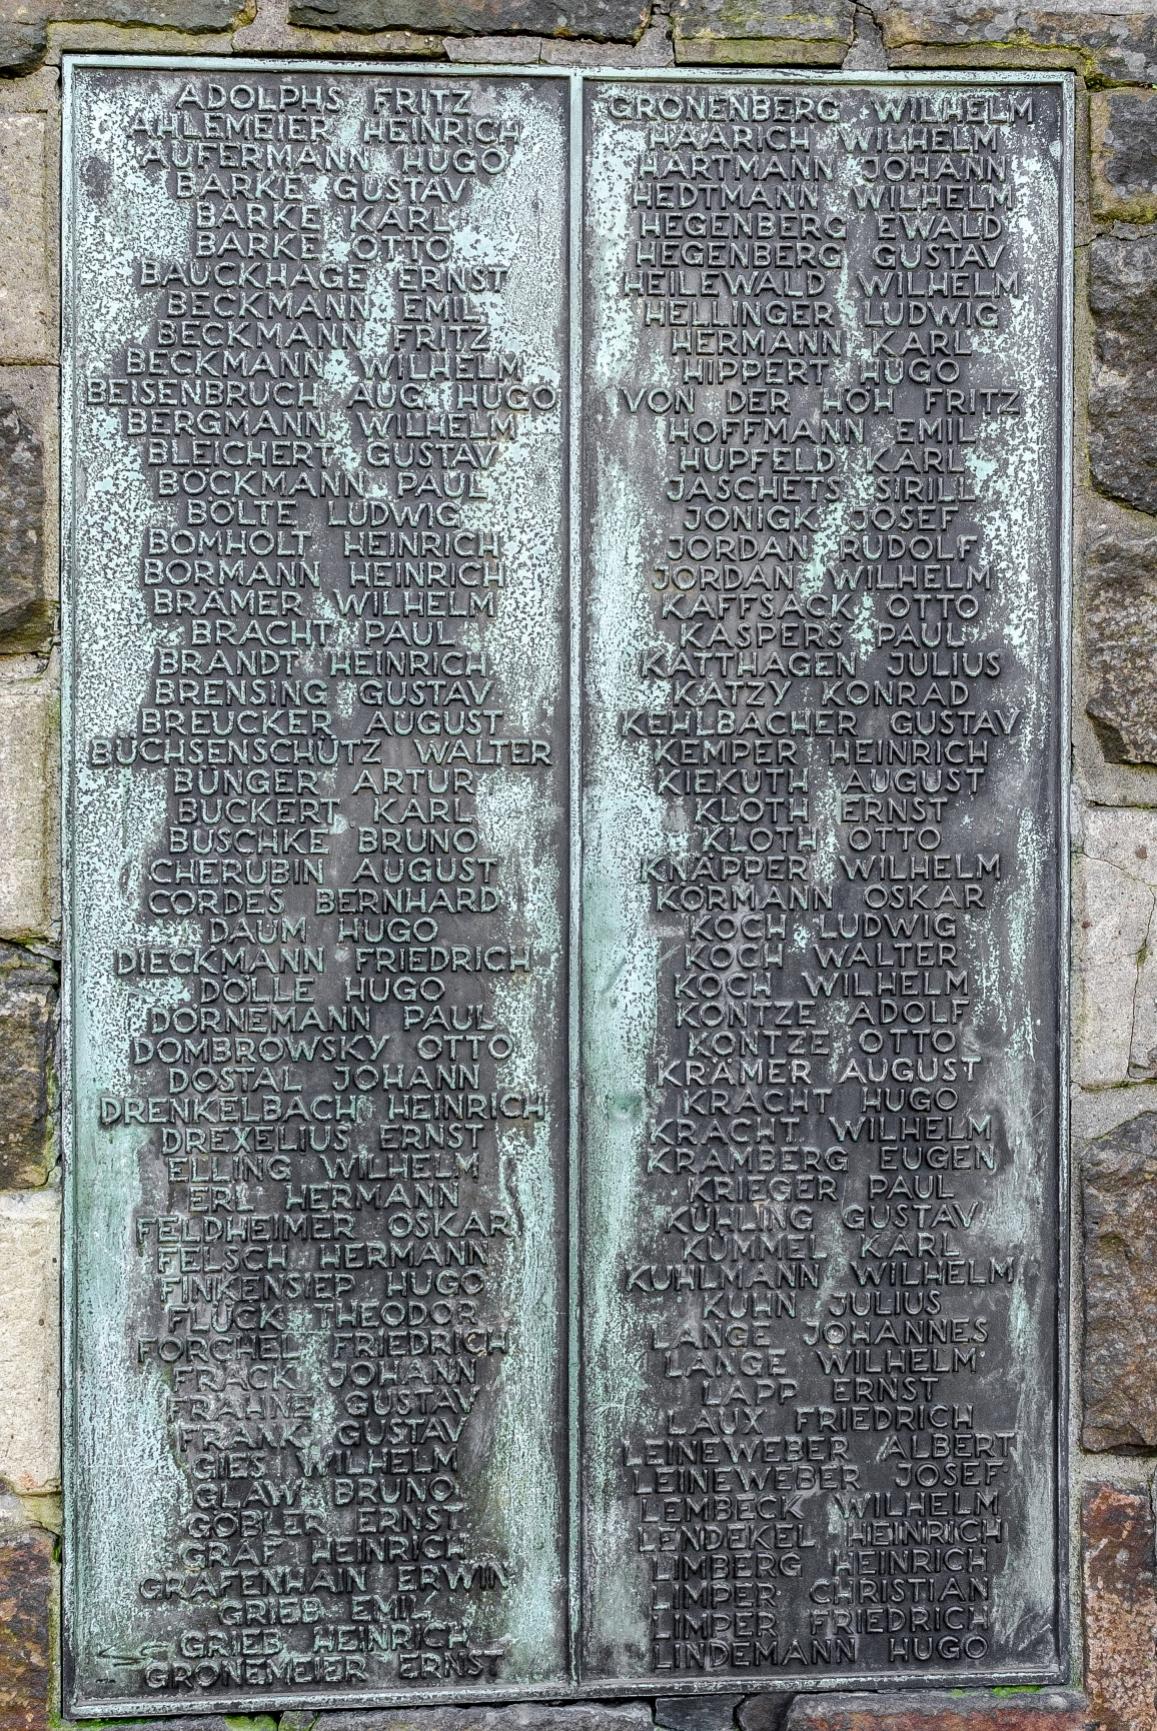 ADOLPHS FRITZ
AHLEMEIER HEINRICH
AUFERMANN HUGO
BARKE GUSTAV
BARKE KARL
BARKE OTTO
BAUCKHAGE ERNST
BECKMANN EMIL
BECKMANN FRITZ
BECKMANN WILHELM
BEISENBRUCH AUG. HUGO
BERGMANN WILHELM
BLEICHERT GUSTAV
BÖCKMANN PAUL
BOLTE LUDWIG
BOMHOLT HEINRICH
BORMANN HEINRICH
BRÄMER WILHELM
BRACHT PAUL
BRANDT HEINRICH
BRENSING GUSTAV
BREUCKER AUGUST
BÜCHSENSCHÜTZ WALTER
BÜNGER ARTUR
BUCKERT KARL
BUSCHKE BRUNO
CHERUBIN AUGUST
CORDES BERNHARD
DAUM HUGO
DIECKMANN FRIEDRICH
DÖLLE HUGO
DÖRNEMANN PAUL
DOMBROWSKY OTTO
DOSTAL JOHANN
DRENKELBACH HEINRICH
DREXELIUS ERNST
ELLING WILHELM
ERL HERMANN
FELDHEIMER OSKAR
FELSCH HERMANN
FINKENSIEP HUGO
FLÜCK THEODOR
FORCHEL FRIEDRICH
FRACK JOHANN
FRAHNE GUSTAV
FRANK GUSTAV
GIES WILHELM
GLAW BRUNO
GÖBLER ERNST
GRÄF HEINRICH
GRÄFENHAIN ERWIN
GRIEB EMIL
GRIEB HEINRICH
GRONEMEIER ERNST
GRONENBERG WILHELM
HAARICH WILHELM
HARTMANN JOHANN
HEDTMANN WILHELM
HEGENBERG EWALD
HEGENBERG GUSTAV
HEILEWALD WILHELM
HELLINGER LUDWIG
HERMANN KARL
HIPPERT HUGO
VON DER HÖH FRITZ
HOFFMANN EMIL
HUPFELD KARL
JASCHETS SIRILL
JONIGK JOSEF
JORDAN RUDOLF
JORDAN WILHELM
KAFFSACK OTTO
KASPERS PAUL
KATTHAGEN JULIUS
KATZY KONRAD
KEHLBACHER GUSTAV
KEMPER HEINRICH
KIEKUTH AUGUST
KLOTH ERNST
KLOTH OTTO
KNÄPPER WILHELM
KÖRMANN OSKAR
KOCH LUDWIG
KOCH WALTER
KOCH WILHELM
KONTZE ADOLF
KONTZE OTTO
KRÄMER AUGUST
KRACHT HUGO
KRACHT WILHELM
KRAMBERG EUGEN
KRIEGER PAUL
KÜHLING GUSTAV
KÜMMEL KARL
KUHLMANN WILHELM
KUHN JULIUS
LANGE JOHANNES
LANGE WILHELM
LAPP ERNST
LAUX FRIEDRICH
LEINEWEBER ALBERT
LEINEWEBER JOSEF
LEMBECK WILHELM
LENDEKEL HEINRICH
LIMBERG HEINRICH
LIMPER CHRISTIAN
LIMPER FRIEDRICH
LINDEMANN HUGO